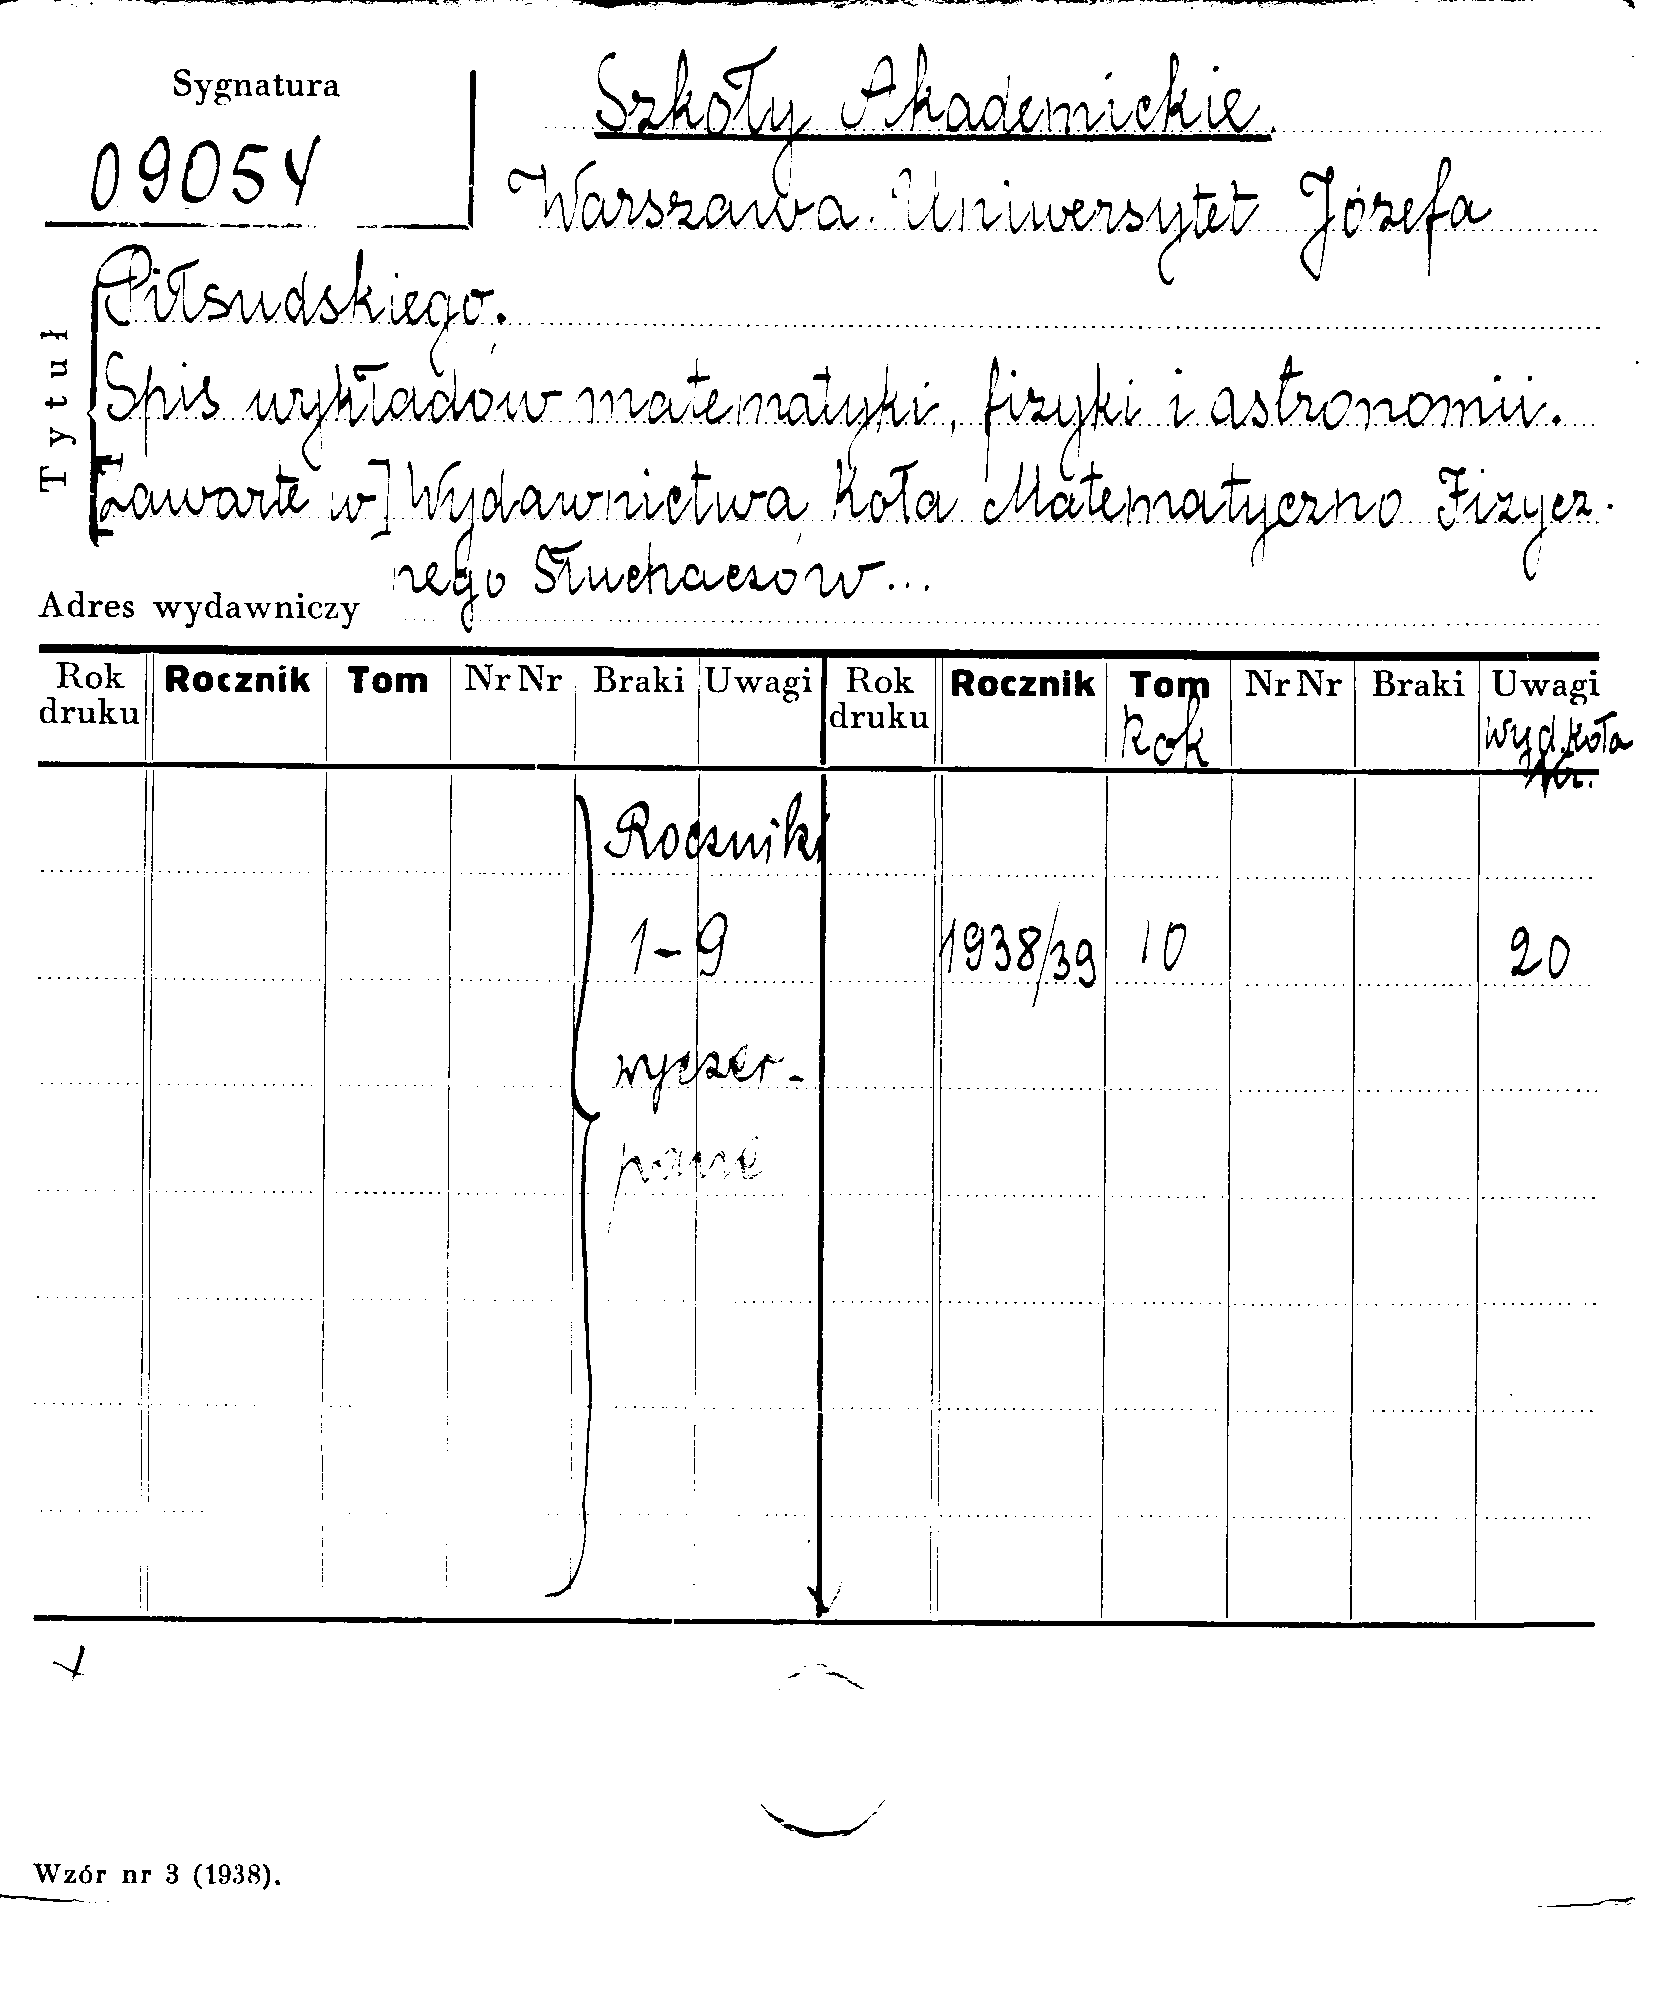 Sygnatura
09054
Szkoły Akademickie.
Warszawa. Uniwersytet Józefa
Piłsudskiego.
Tytuł
Spis wykładów matematyki, fizyki i astronomii.
[zawarte w] Wydawnictwa Koła Matematyczno Fizycz-
nego Słuchaczów...
Adres wydawniczy
Rok druku Rocznik Tom Nr Nr Braki Uwagi Rok druku Rocznik Tom Nr Nr Braki Uwagi
Rok wyd. Koła
Nr.
Roczniki
1-9 1938/39 10 20
wyczer-
pane
Wzór nr 3 (1938).